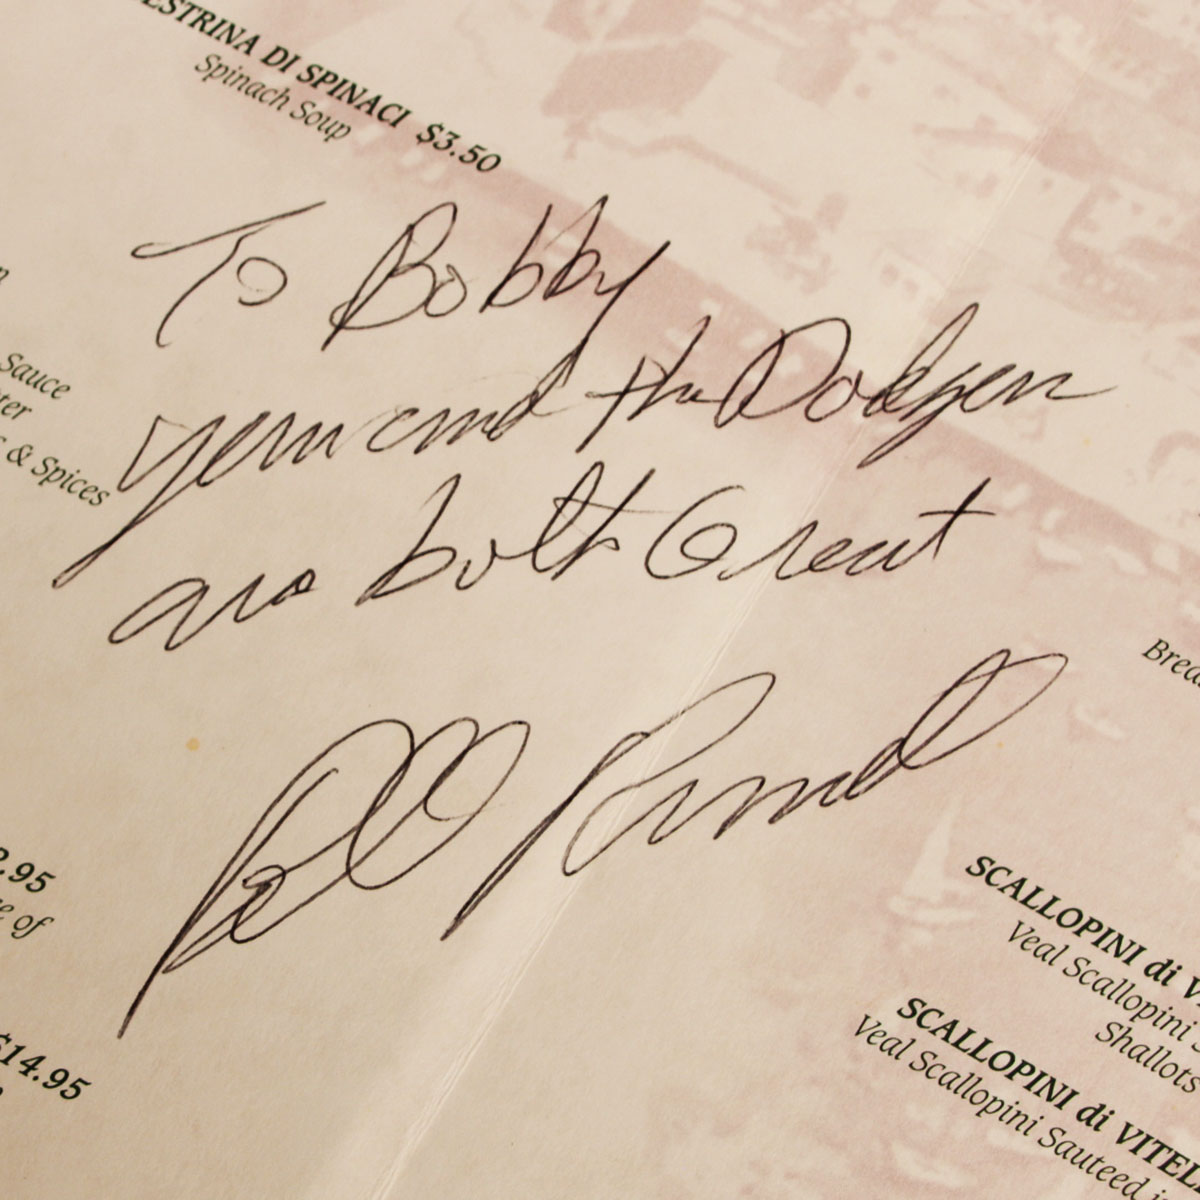 ESTRINA DI SPINACI $3.50
Spinach Soup
To Bobby
and the Dodgers
are both Great
Sauce
ter
& Spices
.95
e of
$14.95
Brea
SCALLOPINI di V
Veal Scallopini
Shallots
SCALLOPINI di VITEL
Veal Scallopini Sauteed